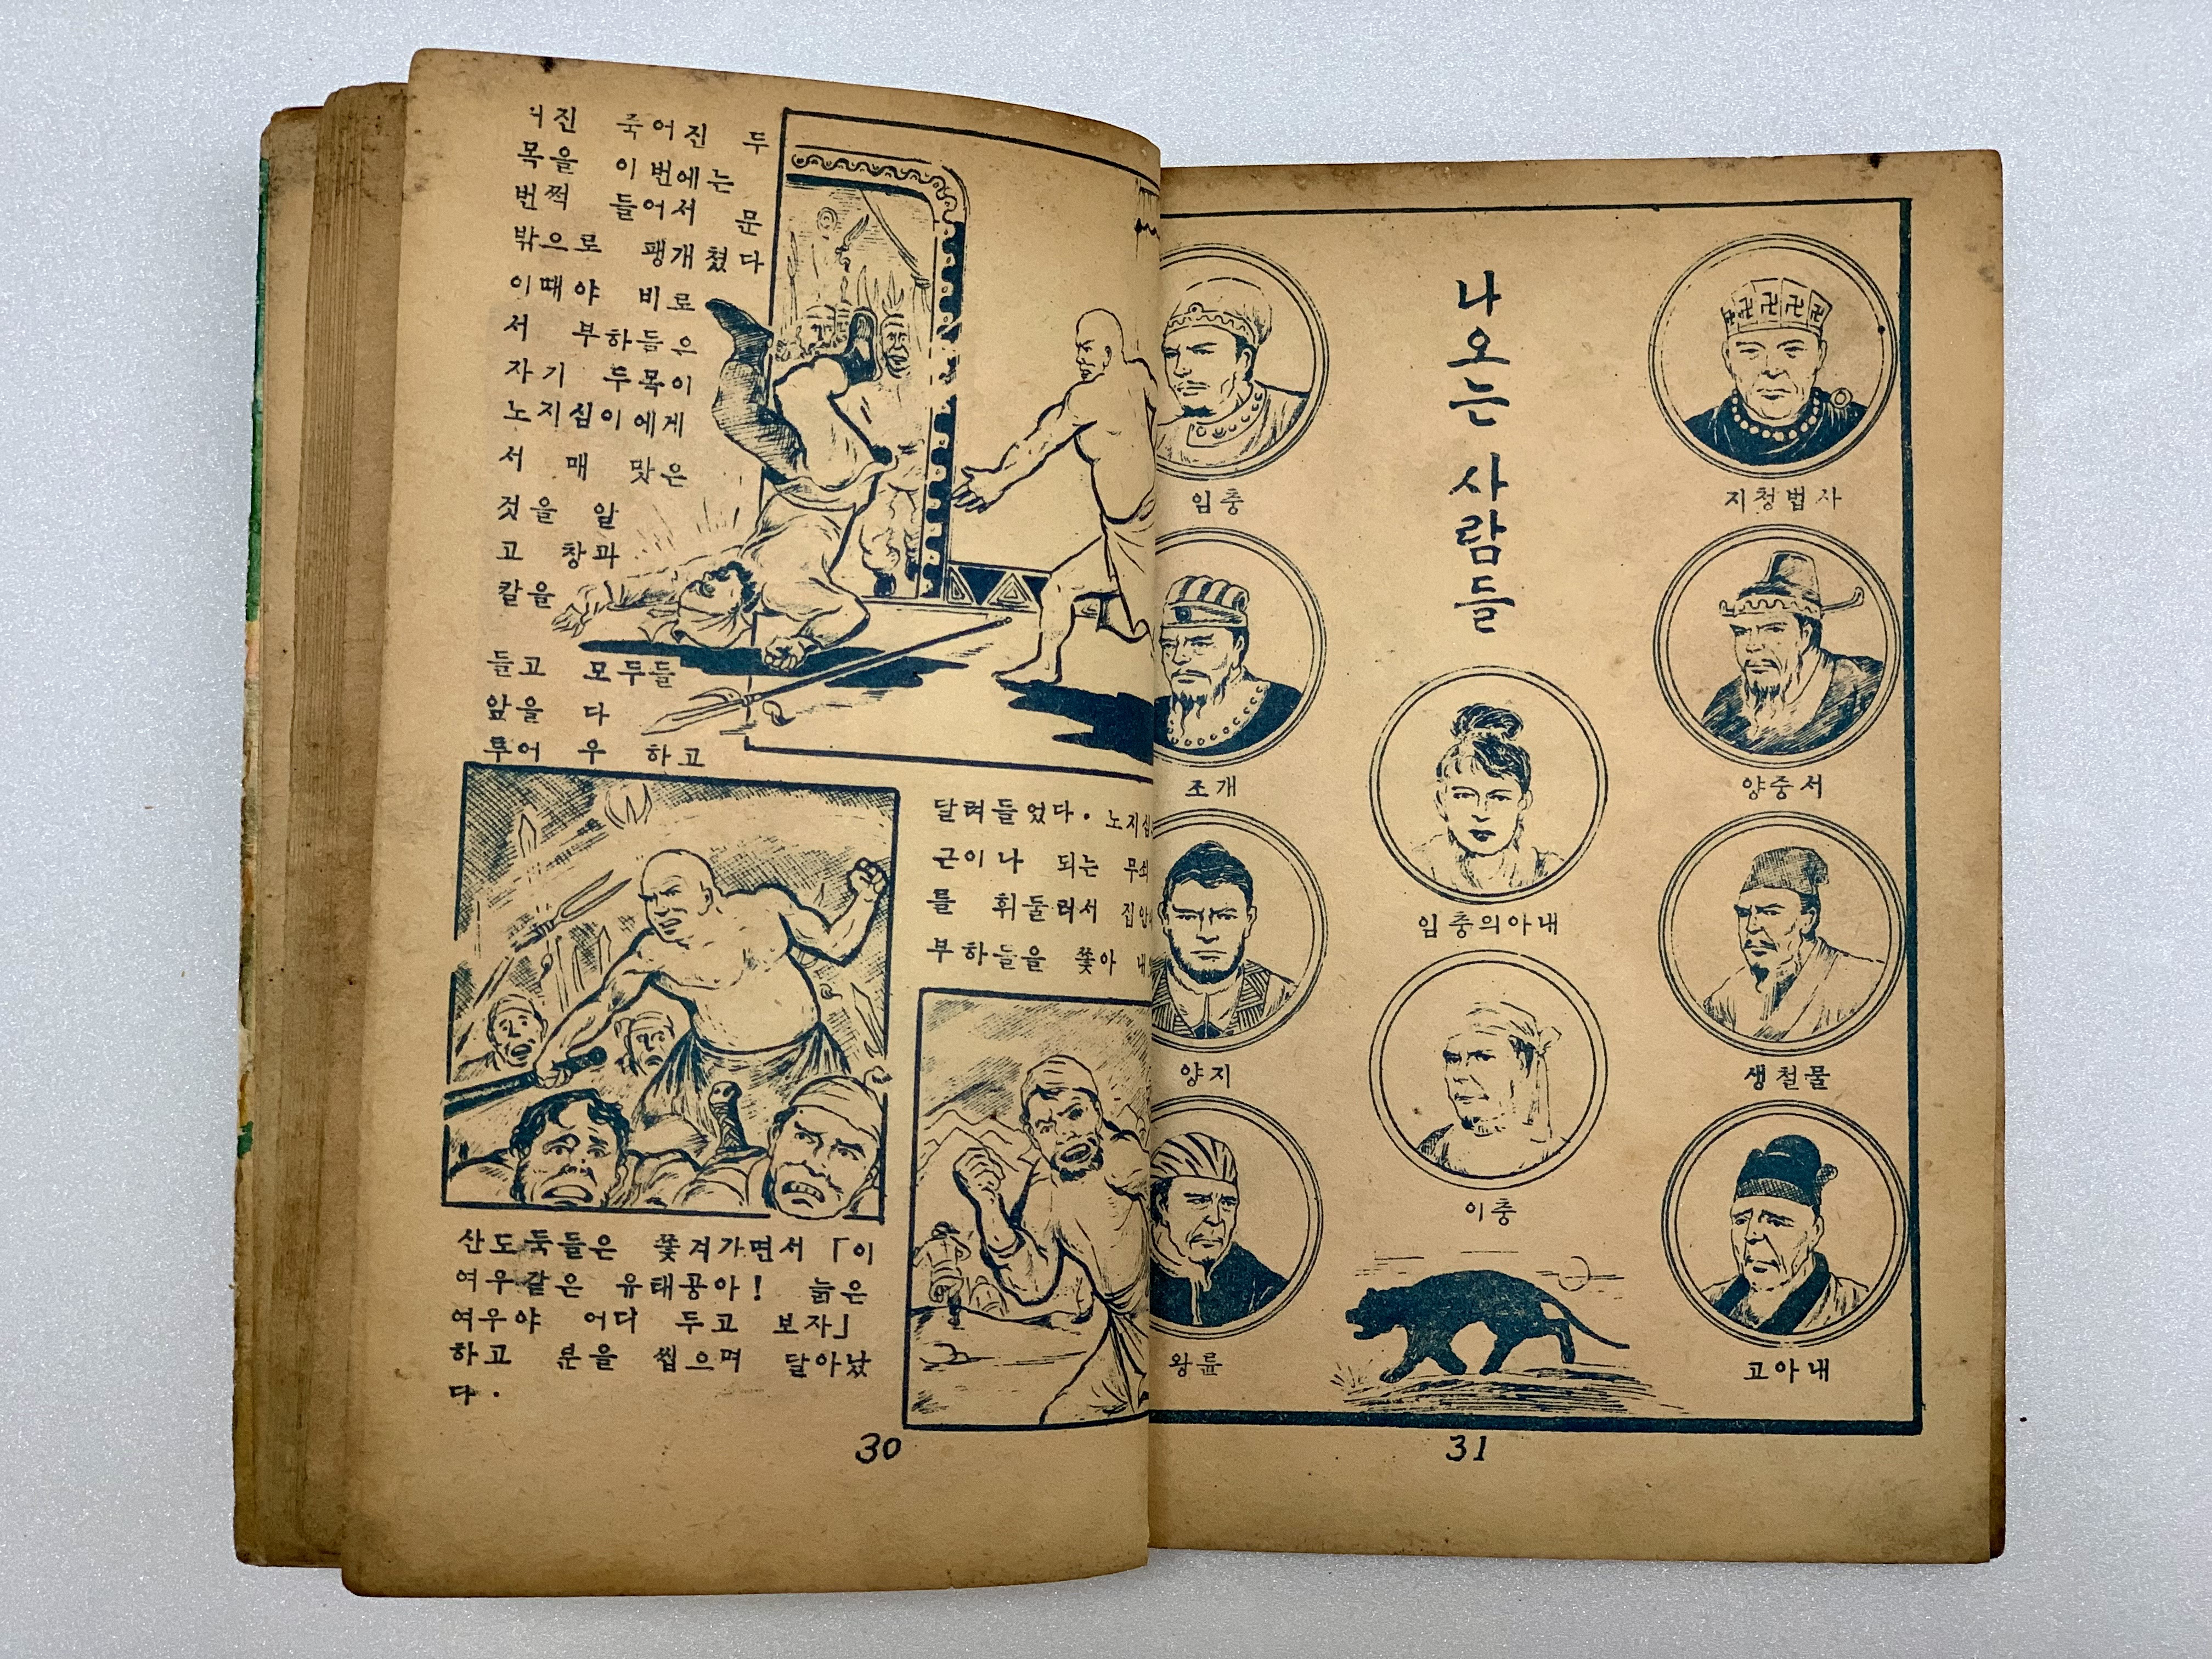 진 죽어진 두
목을 이번에는
번쩍 들어서 문
밖으로 팽개쳤다
이때야 비로
서 부하들은
자기 두목이
노지심이에게
서 매 맞은
것을 알
고 창과
칼을
들고 모두들
앞을 다
투어 우 하고
달려들었다. 노지심
근이나 되는 무쇠
를 휘둘러서 집안
부하들을 쫓아
산도둑들은 쫓겨가면서 「이
여우같은 유태공아! 늙은
여우야 어디 두고 보자」
하고 분을 씹으며 달아났
다.
30
나오는 사람들
임충
조개
양지
왕륜
임충의아내
이충
지청법사
양중서
생철물
고아내
31